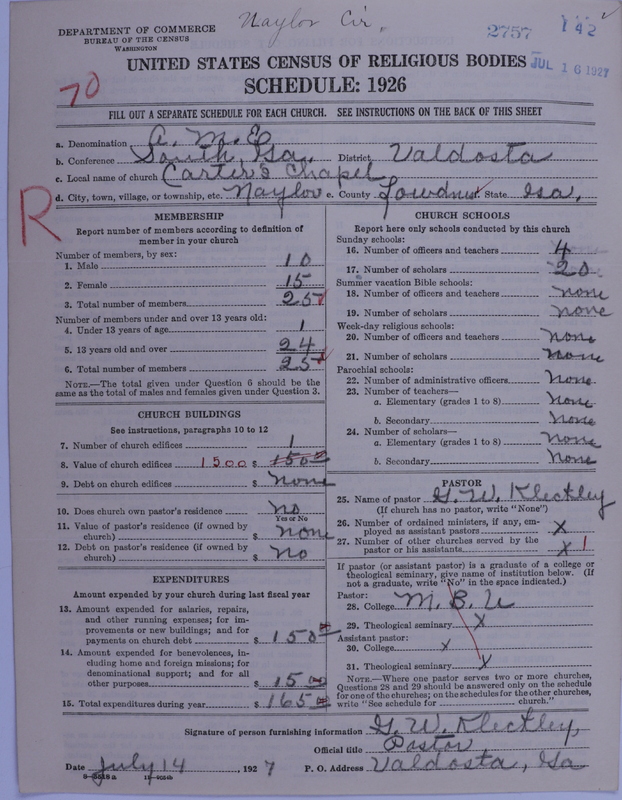 Naylor Cir.
DEPARTMENT OF COMMERCE
BUREAU OF THE CENSUS
WASHINGTON
2757 142
JUL 16 1927
UNITED STATES CENSUS OF RELIGIOUS BODIES
SCHEDULE: 1926
70
FILL OUT A SEPARATE SCHEDULE FOR EACH CHURCH. SEE INSTRUCTIONS ON THE BACK OF THIS SHEET
a. Denomination A. M. E.
b. Conference South, Ga. District Valdosta
c. Local name of church Carter's Chapel
d. City, town, village, or township, etc. Naylor e. County Lowndes State Ga,
R
MEMBERSHIP
Report number of members according to definition of
member in your church
Number of members, by sex:
1. Male 10
2. Female 15
3. Total number of members 25
Number of members under and over 13 years old:
4. Under 13 years of age 1
5. 13 years old and over 24
6. Total number of members 25
NOTE.—The total given under Question 6 should be
same as the total of males and females given under Question 3.
CHURCH BUILDINGS
See instructions, paragraphs 10 to 12
7. Number of church edifices 1
8. Value of church edifices 1500 $ 150
9. Debt on church edifices $ none
10. Does church own pastor's residence no
Yes or No
11. Value of pastor's residence (if owned by
church) $ none
12. Debt on pastor's residence (if owned by
church) $ no
EXPENDITURES
Amount expended by your church during last fiscal year
13. Amount expended for salaries, repairs,
and other running expenses; for im-
provements or new buildings; and for
payments on church debt $ 150
14. Amount expended for benevolences, in-
cluding home and foreign missions; for
denominational support; and for all
other purposes $ 15 00
15. Total expenditures during year $ 165 00
CHURCH SCHOOLS
Report here only schools conducted by this church
Sunday schools:
16. Number of officers and teachers 4
17. Number of scholars 20
Summer vacation Bible schools:
18. Number of officers and teachers none
19. Number of scholars none
Week-day religious schools:
20. Number of officers and teachers none
21. Number of scholars none
Parochial schools:
22. Number of administrative officers none
23. Number of teachers—
a. Elementary (grades 1 to 8) none
b. Secondary none
24. Number of scholars—
a. Elementary (grades 1 to 8) none
b. Secondary none
PASTOR
25. Name of pastor G. W. Kleckley
(If church has no pastor, write "None")
26. Number of ordained ministers, if any, em-
ployed as assistant pastors X
27. Number of other churches served by the
pastor or his assistants X 1
If pastor (or assistant pastor) is a graduate of a college or
theological seminary, give name of institution below. (If
not a graduate, write "No" in the space indicated.)
Pastor:
28. College M. B. U
29. Theological seminary X
Assistant pastor:
30. College X
31. Theological seminary X
NOTE.—Where one pastor serves two or more churches,
Questions 28 and 29 should be answered only on the schedule
for one of the churches; on the schedules for the other churches,
write "See schedule for church."
Signature of person furnishing information G. W. Kleckley,
Official title Pastor
Date July 14, 1927 P. O. Address Valdosta, Ga